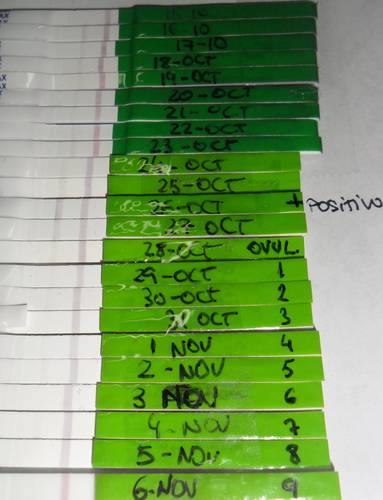 16-10
17-10
18-OCT
19-OCT
20-OCT
21-OCT
22-OCT
23-OCT
24-OCT
25-OCT
26-OCT + POSITIVO
27-OCT
28-OCT OVUL.
29-OCT 1
30-OCT 2
31 OCT 3
1 NOV 4
2-NOV 5
3 NOV 6
4-NOV 7
5-NOV 8
6-NOV 9